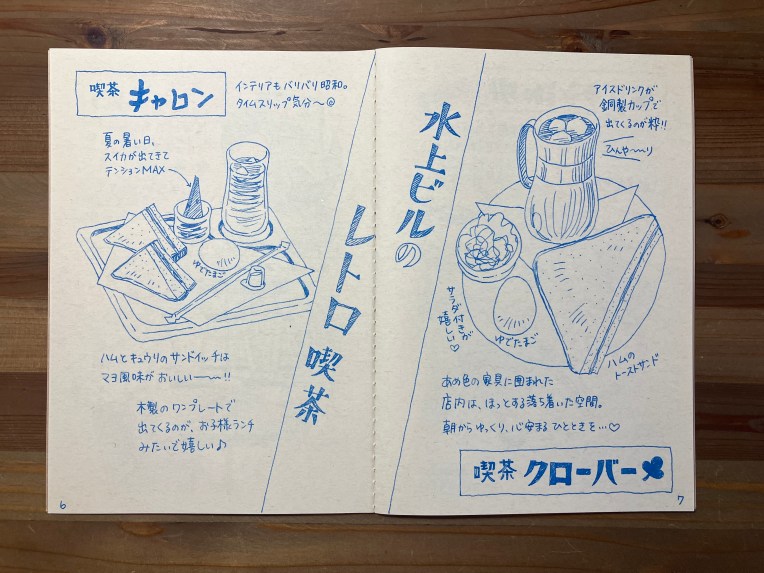 喫茶 キャロン
インテリアもバリバリ昭和。
タイムスリップ気分〜☺
夏の暑い日、
スイカが出てきて
テンションMAX
ゆでたまご
ハムとキュウリのサンドイッチは
マヨ風味がおいしい〜〜!!
木製のワンプレートで
出てくるのが、お子様ランチ
みたいで嬉しい♪
6
水上ビルの
レトロ喫茶
アイスドリンクが
銅製カップで
出てくるのが粋!!
ひんや〜〜り
サラダ付きが
嬉しい♡
ゆでたまご
ハムの
トーストサンド
あめ色の家具に囲まれた
店内は、ほっとする落ち着いた空間。
朝からゆっくり、心安まるひとときを…♡
喫茶 クローバー
7